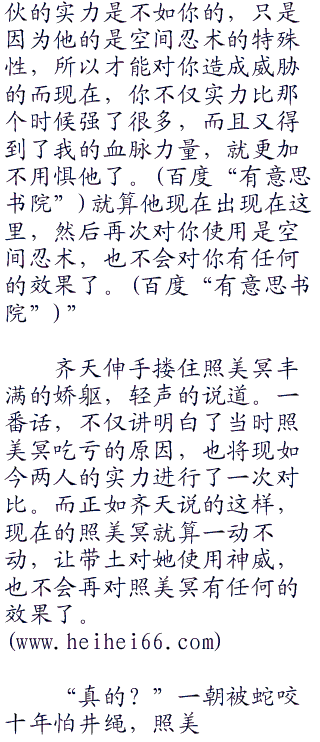 伙的实力是不如你的，只是
因为他的是空间忍术的特殊
性，所以才能对你造成威胁
的而现在，你不仅实力比那
个时候强了很多，而且又得
到了我的血脉力量，就更加
不用惧他了。(百度“有意思
书院”)就算他现在出现在这
里，然后再次对你使用是空
间忍术，也不会对你有任何
的效果了。(百度“有意思书
院”)”
齐天伸手搂住照美冥丰
满的娇躯，轻声的说道。一
番话，不仅讲明白了当时照
美冥吃亏的原因，也将现如
今两人的实力进行了一次对
比。而正如齐天说的这样，
现在的照美冥就算一动不
动，让带土对她使用神威，
也不会再对照美冥有任何的
效果了。
(www.heihei66.com)
“真的？”一朝被蛇咬
十年怕井绳，照美